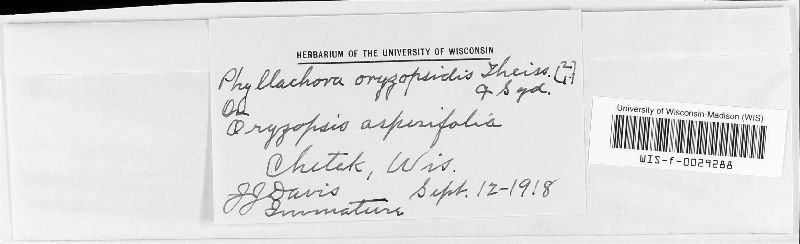 HERBARIUM OF THE UNIVERSITY OF WISCONSIN
Phyllachora oryzopsidis Theiss.
& Syd.
On
Oryzopsis asperifolia
Chetek, Wis.
JJ Davis Sept. 12-1918
Immature
University of Wisconsin-Madison (WIS)
WIS-f-0029288